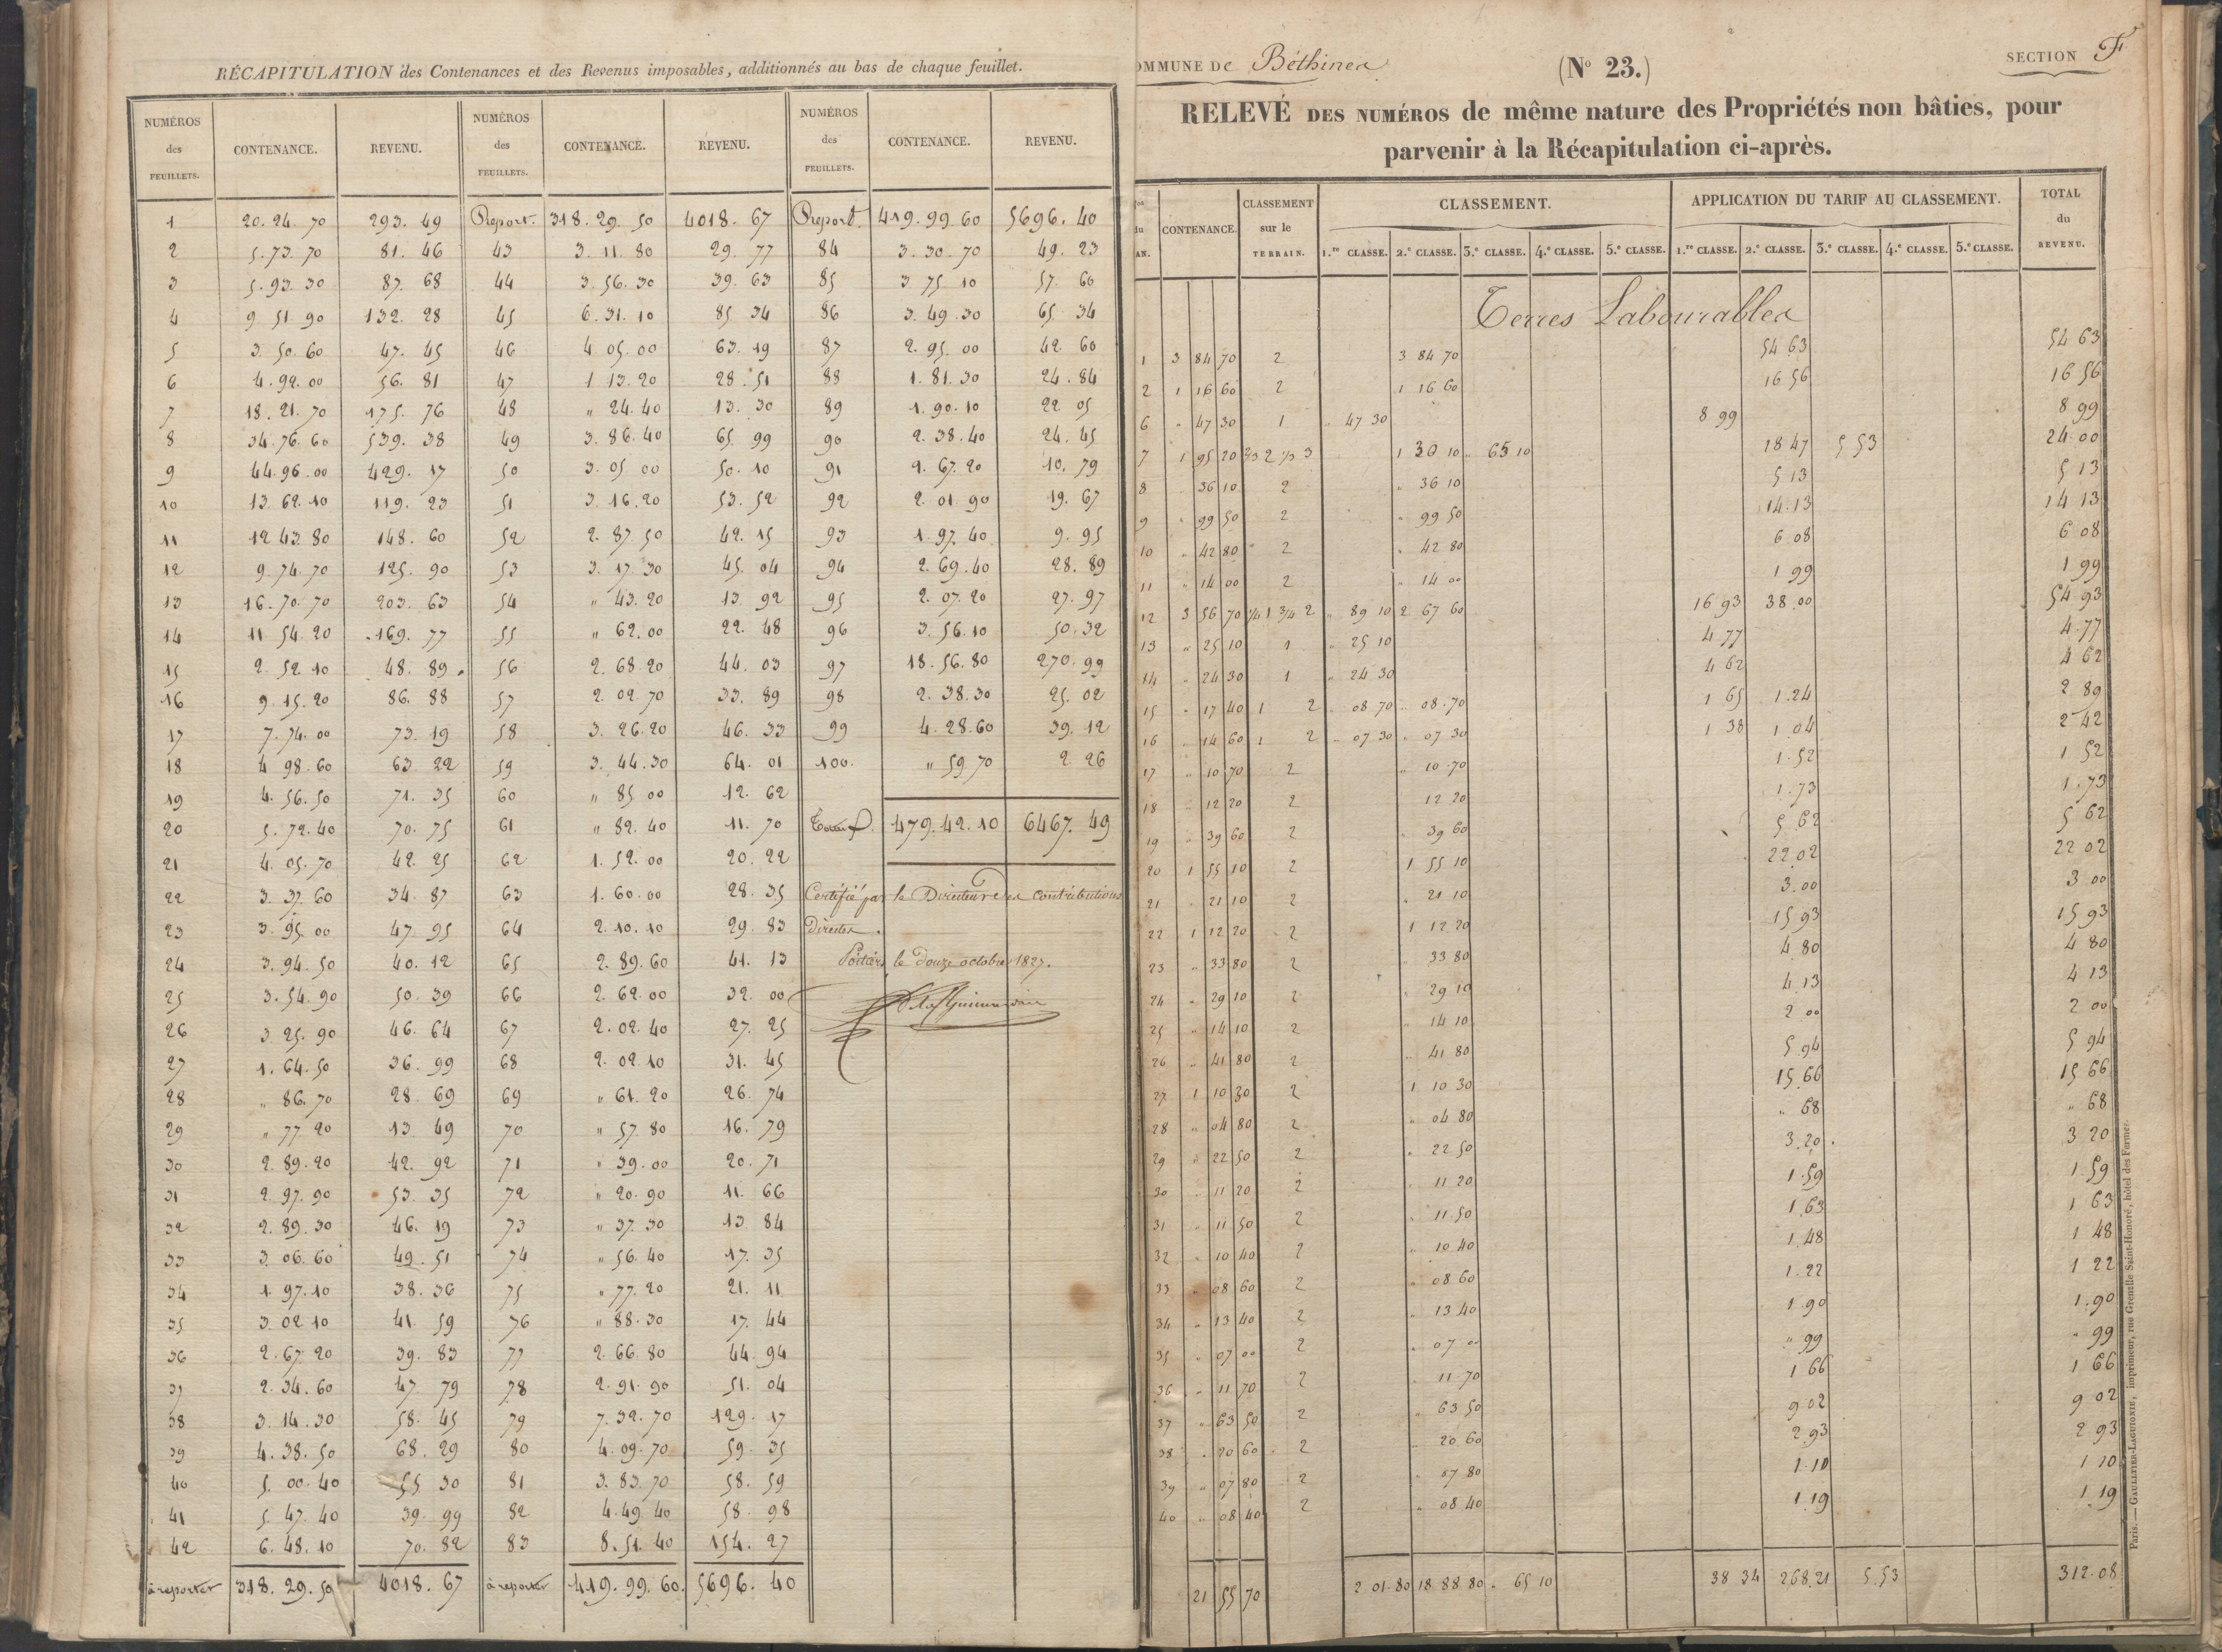 RÉCAPITULATION des Contenances et des Revenus imposables, additionnés au bas de chaque feuillet.
NUMÉROS des FEUILLETS. CONTENANCE. REVENU. NUMÉROS des FEUILLETS. CONTENANCE. REVENU. NUMÉROS des FEUILLETS. CONTENANCE. REVENU.
1 20.24.70 293.49 Report. 318.29.50 4018.67 Report. 419.99.60 5696.40
2 5.73.70 81.46 43 3.11.80 29.77 84 3.30.70 49.23
3 5.93.30 87.68 44 3.56.30 39.63 85 3.75.10 57.60
4 9.51.90 132.28 45 6.31.10 85.34 86 3.49.30 65.34
5 3.50.60 47.45 46 4.05.00 63.19 87 2.95.00 42.60
6 4.92.00 56.81 47 1.13.20 28.51 88 1.81.30 24.84
7 18.21.70 175.76 48 " 24.40 13.30 89 1.90.10 22.05
8 34.76.60 539.38 49 3.86.40 65.99 90 2.38.40 24.45
9 44.96.00 429.17 50 3.05.00 50.10 91 2.67.20 10.79
10 13.62.10 119.23 51 3.16.20 53.52 92 2.01.90 19.67
11 12.43.80 148.60 52 2.87.50 42.15 93 1.97.40 9.95
12 9.74.70 125.90 53 3.17.30 45.04 94 2.69.40 28.89
13 16.70.70 203.63 54 " 43.20 13.92 95 2.07.20 27.97
14 11.54.20 169.77 55 " 62.00 22.48 96 3.56.10 50.32
15 2.52.10 48.89 56 2.68.20 44.03 97 18.56.80 270.99
16 9.15.20 86.88 57 2.02.70 33.89 98 2.38.30 25.02
17 7.74.00 73.19 58 3.26.20 46.33 99 4.28.60 39.12
18 4.98.60 63.22 59 3.44.30 64.01 100. " 59.70 2.26
19 4.56.50 71.35 60 " 85.00 12.62
20 5.72.40 70.75 61 " 82.40 11.70 Totaux. 479.42.10 6467.49
21 4.05.70 42.25 62 1.52.00 20.22
22 3.37.60 34.87 63 1.60.00 28.35 Certifié par le Directeur des Contributions
23 3.95.00 47.95 64 2.10.10 29.83 Directes.
24 3.94.50 40.12 65 2.89.60 41.13 Poitiers, le Douze octobre 1827.
25 3.54.90 50.39 66 2.62.00 32.00
26 3.25.90 46.64 67 2.02.40 27.25
27 1.64.50 36.99 68 2.02.10 31.45
28 " 86.70 28.69 69 " 61.20 26.74
29 " 77.20 13.49 70 " 57.80 16.79
30 2.89.20 42.92 71 " 39.00 20.71
31 2.97.90 53.35 72 " 20.90 11.66
32 2.89.30 46.19 73 " 37.30 13.84
33 3.06.60 49.51 74 " 56.40 17.35
34 1.97.10 38.36 75 " 77.20 21.11
35 3.02.10 41.59 76 " 88.30 17.44
36 2.67.20 39.83 77 2.66.80 44.94
37 2.34.60 47.79 78 2.91.90 51.04
38 3.14.30 58.45 79 7.32.70 129.17
39 4.38.50 68.29 80 4.09.70 59.35
40 5.00.40 55.30 81 3.83.70 58.59
41 5.47.40 39.99 82 4.49.40 58.98
42 6.48.10 70.82 83 8.51.40 154.27
à reporter 318.29.50 4018.67 à reporter 419.99.60. 5696.40
OMMUNE De Béthines (No 23.) SECTION F
RELEVÉ DES NUMÉROS de même nature des Propriétés non bâties, pour
parvenir à la Récapitulation ci-après.
du AN. CONTENANCE. CLASSEMENT sur le TERRAIN. CLASSEMENT. APPLICATION DU TARIF AU CLASSEMENT. TOTAL du REVENU.
1.re CLASSE. 2.e CLASSE. 3.e CLASSE. 4.e CLASSE. 5.e CLASSE. 1.re CLASSE. 2.e CLASSE. 3.e CLASSE. 4.e CLASSE. 5.e CLASSE.
Terres Labourables
1 3 84 70 2 3 84 70 54 63 54 63
2 1 16 60 2 1 16 60 16 56 16 56
6 " 47 30 1 " 47 30 8 99 8 99
7 1 95 20 2/3 2 1/3 3 1 30 10 " 65 10 18 47 5 53 24 00
8 " 36 10 2 " 36 10 5 13 5 13
9 " 99 50 2 " 99 50 14.13 14 13
10 " 42 80 2 " 42 80 6 08 6 08
11 " 14 00 2 " 14 00 1 99 1 99
12 3 56 70 1/4 1 3/4 2 " 89 10 2 67 60 16 93 38.00 54 93
13 " 25 10 1 " 25 10 4 77 4.77
14 " 24 30 1 " 24 30 4 62 4 62
15 " 17 40 1 2 " 08 70 " 08.70 1 65 1.24 2 89
16 " 14 60 1 2 " 07 30 " 07 30 1 38 1.04 2 42
17 " 10 70 2 " 10.70 1.52 1 52
18 " 12 20 2 12 20 1.73 1.73
19 " 39 60 2 " 39 60 5 62 5 62
20 1 55 10 2 1 55 10 22 02 22 02
21 " 21 10 2 " 21 10 3.00 3 00
22 1 12 20 2 1 12 20 15 93 15 93
23 " 33 80 2 " 33 80 4 80 4 80
24 " 29 10 2 " 29 10 4.13 4 13
25 " 14 10 2 " 14 10 2 00 2 00
26 " 41 80 2 " 41 80 5 94 5 94
27 1 10 30 2 1 10 30 15 66 15 66
28 " 04 80 2 " 04 80 " 68 " 68
29 " 22 50 2 " 22 50 3.20 3 20
30 " 11 20 2 " 11 20 1.59 1.59
31 " 11 50 2 " 11.50 1.63 1 63
32 " 10 40 2 " 10 40 1.48 1 48
33 " 08 60 2 " 08 60 1.22 1 22
34 " 13 40 2 " 13 40 1.90 1.90
35 " 07 00 2 " 07 00 " 99 " 99
36 " 11 70 2 " 11.70 1 66 1 66
37 " 63 50 2 " 63 50 9 02 9 02
38 " 20 60 2 " 20 60 2 93 2 93
39 " 07 80 2 " 07 80 1.10 1 10
40 " 08 40 2 " 08 40 1.19 1.19
21 55 70 2.01.80 18.88 80 " 65 10 38 34 268.21 5.53 312.08
Paris.—GAULTIER-LAGUIONIE, imprimeur, rue Grenelle Saint-Honoré, hôtel des Fermes.